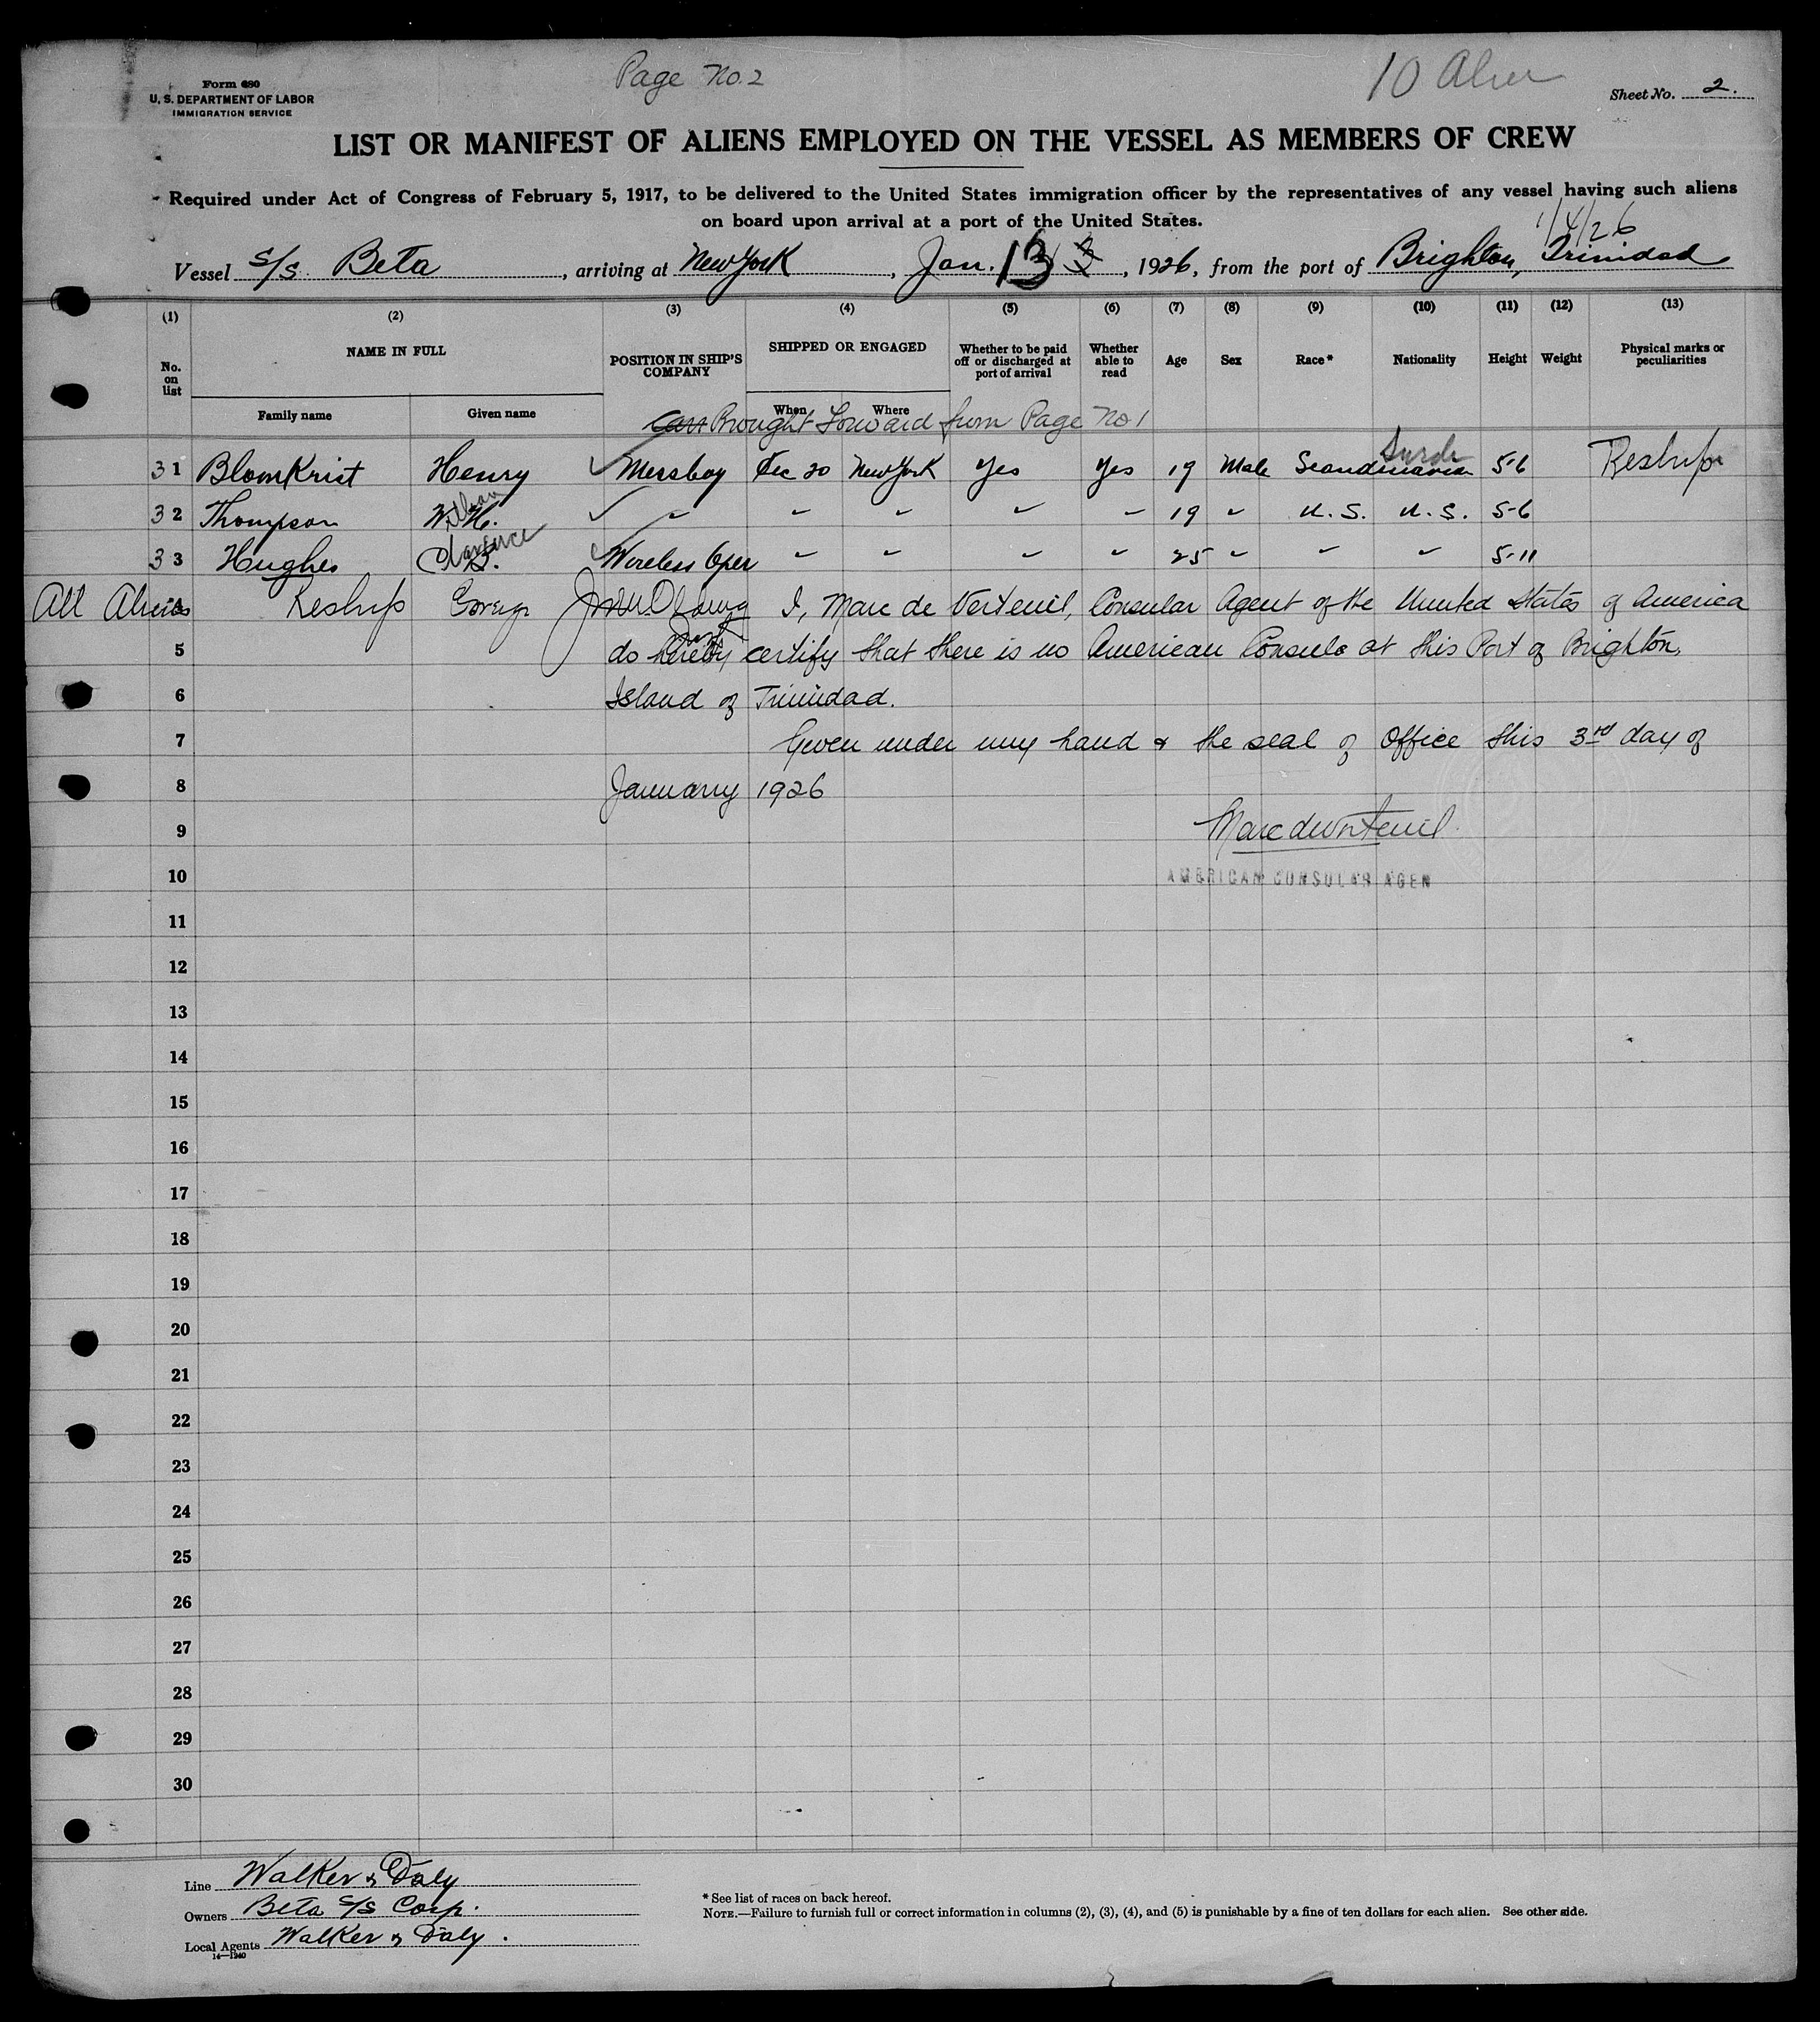 Form 680
U. S. DEPARTMENT OF LABOR
IMMIGRATION SERVICE
Page No. 2
10 Alien
Sheet No. 2.
LIST OR MANIFEST OF ALIENS EMPLOYED ON THE VESSEL AS MEMBERS OF CREW
Required under Act of Congress of February 5, 1917, to be delivered to the United States immigration officer by the representatives of any vessel having such aliens
on board upon arrival at a port of the United States.
1/4/26
Vessel S/S Beta, arriving at New York, Jan. 13 3, 1926, from the port of Brighton, Trinidad
(1) (2) (3) (4) (5) (6) (7) (8) (9) (10) (11) (12) (13)
No. on list NAME IN FULL POSITION IN SHIP'S COMPANY SHIPPED OR ENGAGED Whether to be paid off or discharged at port of arrival Whether able to read Age Sex Race* Nationality Height Weight Physical marks or peculiarities
Family name Given name When Where
Brought Forward from Page No 1
31 BlomKrist Henry ✓ Messboy Dec 20 New York Yes Yes 19 Male Scandinavian 5-6 Reship
32 Thompson W. H. ✓ " " " " " 19 " U.S. U.S. 5-6
33 Hughes Clarence ✓ Wireless Oper " " " " 25 " " " 5-11
All Aliens Reship Foreign I, Marc de Verteuil, Consular Agent of the United States of America
5 do hereby certify that there is no American Consule at this Port of Brighton,
6 Island of Trinidad.
7 Given under my hand & the seal of Office this 3rd day of
8 January 1926
9 Marc de Verteuil
10 AMERICAN CONSULAR AGEN
11
12
13
14
15
16
17
18
19
20
21
22
23
24
25
26
27
28
29
30
Line Walker & Daly
Owners Beta S/S Corp.
Local Agents Walker & Daly.
14—1240
* See list of races on back hereof.
NOTE.—Failure to furnish full or correct information in columns (2), (3), (4), and (5) is punishable by a fine of ten dollars for each alien. See other side.